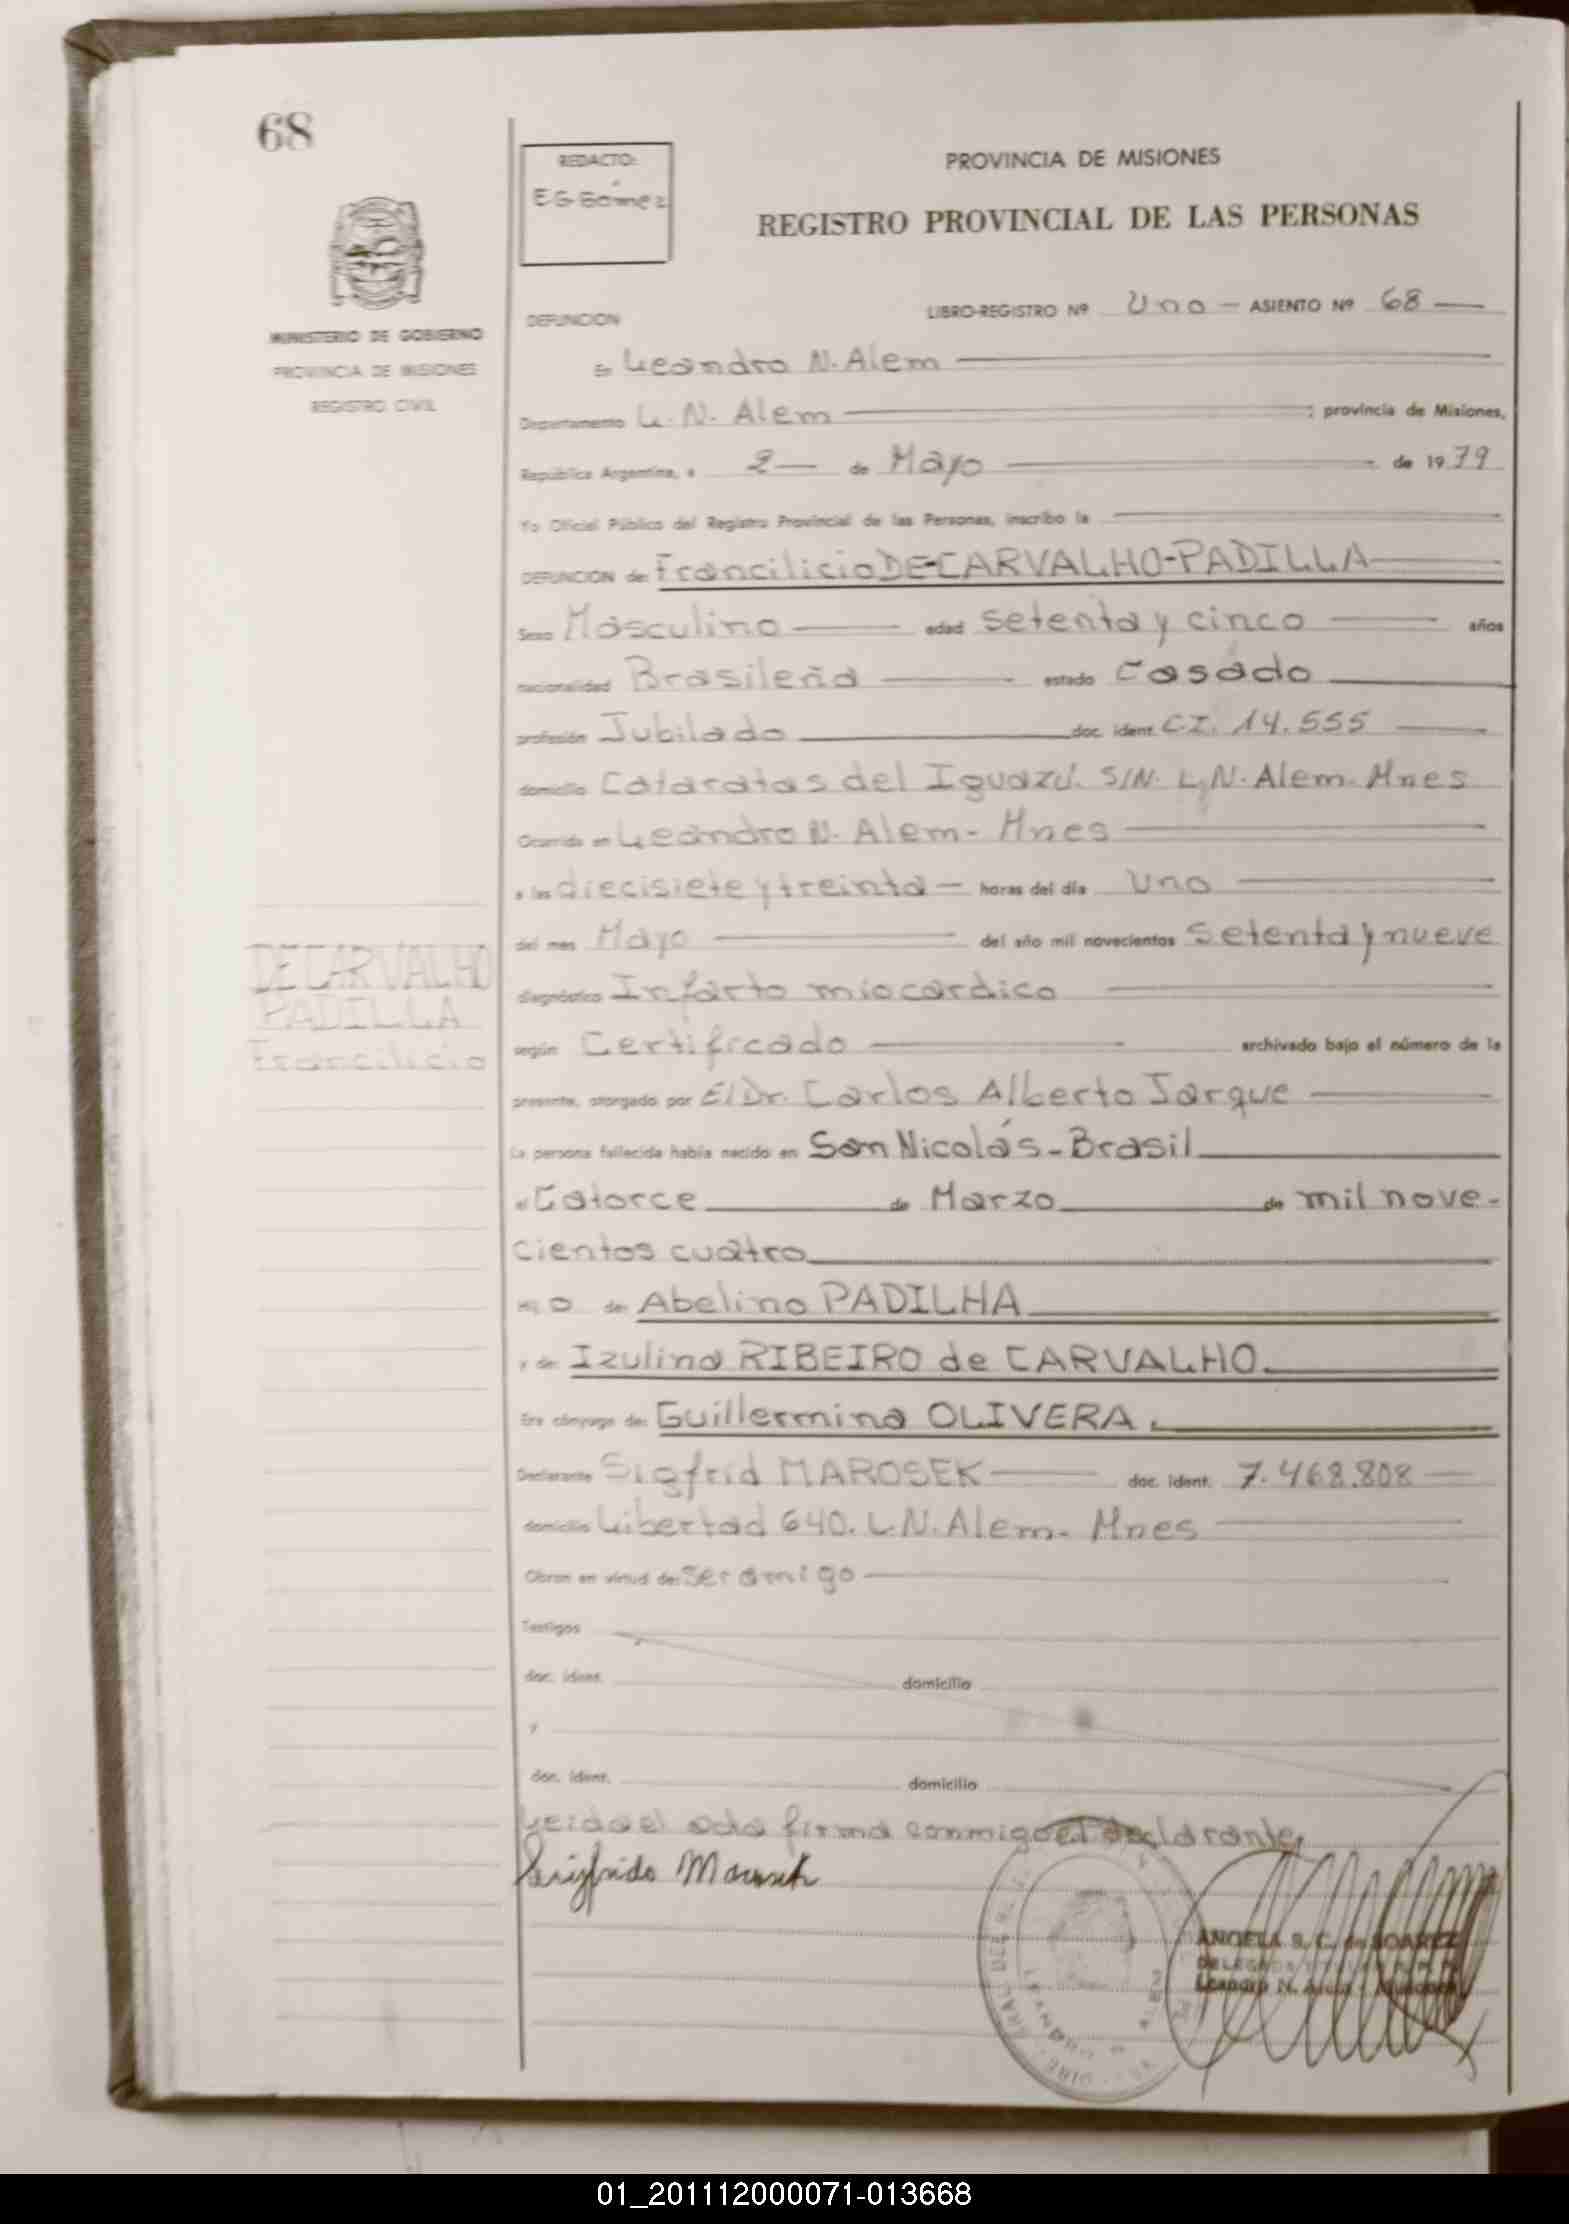 68
REDACTO:
E G Gómez
PROVINCIA DE MISIONES
REGISTRO PROVINCIAL DE LAS PERSONAS
MINISTERIO DE GOBIERNO
PROVINCIA DE MISIONES
REGISTRO CIVIL
DEFUNCION
LIBRO-REGISTRO Nº Uno - ASIENTO Nº 68
En Leandro N. Alem
Departamento L. N. Alem ; provincia de Misiones,
República Argentina, a 2 de Mayo de 1979
Yo Oficial Público del Registro Provincial de las Personas, inscribo la
DEFUNCION de: Francilicio DE-CARVALHO-PADILLA
Sexo Masculino edad setenta y cinco años
nacionalidad Brasileña estado Casado
profesión Jubilado doc. ident. C.I. 14.555
domicilio Cataratas del Iguazú. S/N. L.N. Alem. Mnes
Ocurrida en Leandro N. Alem - Mnes
a las diecisiete y treinta horas del día Uno
del mes Mayo del año mil novecientos setenta y nueve
diagnóstico Infarto miocardico
según Certificado archivado bajo el número de la
presente, otorgado por El Dr. Carlos Alberto Jarque
La persona fallecida había nacido en San Nicolás - Brasil
el Catorce de Marzo de mil nove-
cientos cuatro
Hijo de: Abelino PADILHA
y de Izulina RIBEIRO de CARVALHO.
Era cónyuge de: Guillermina OLIVERA.
Declarante Sigfrid MAROSEK doc. ident. 7.468.808
domicilio Libertad 640. L.N. Alem - Mnes
Obran en virtud de: Ser amigo
Testigos
doc. ident. domicilio
y
doc. ident. domicilio
Leida el acta firma conmigo el declarante,
DE CARVALHO
PADILLA
Francilicio
ANGELA S. C. de SOAREZ
01_201112000071-013668